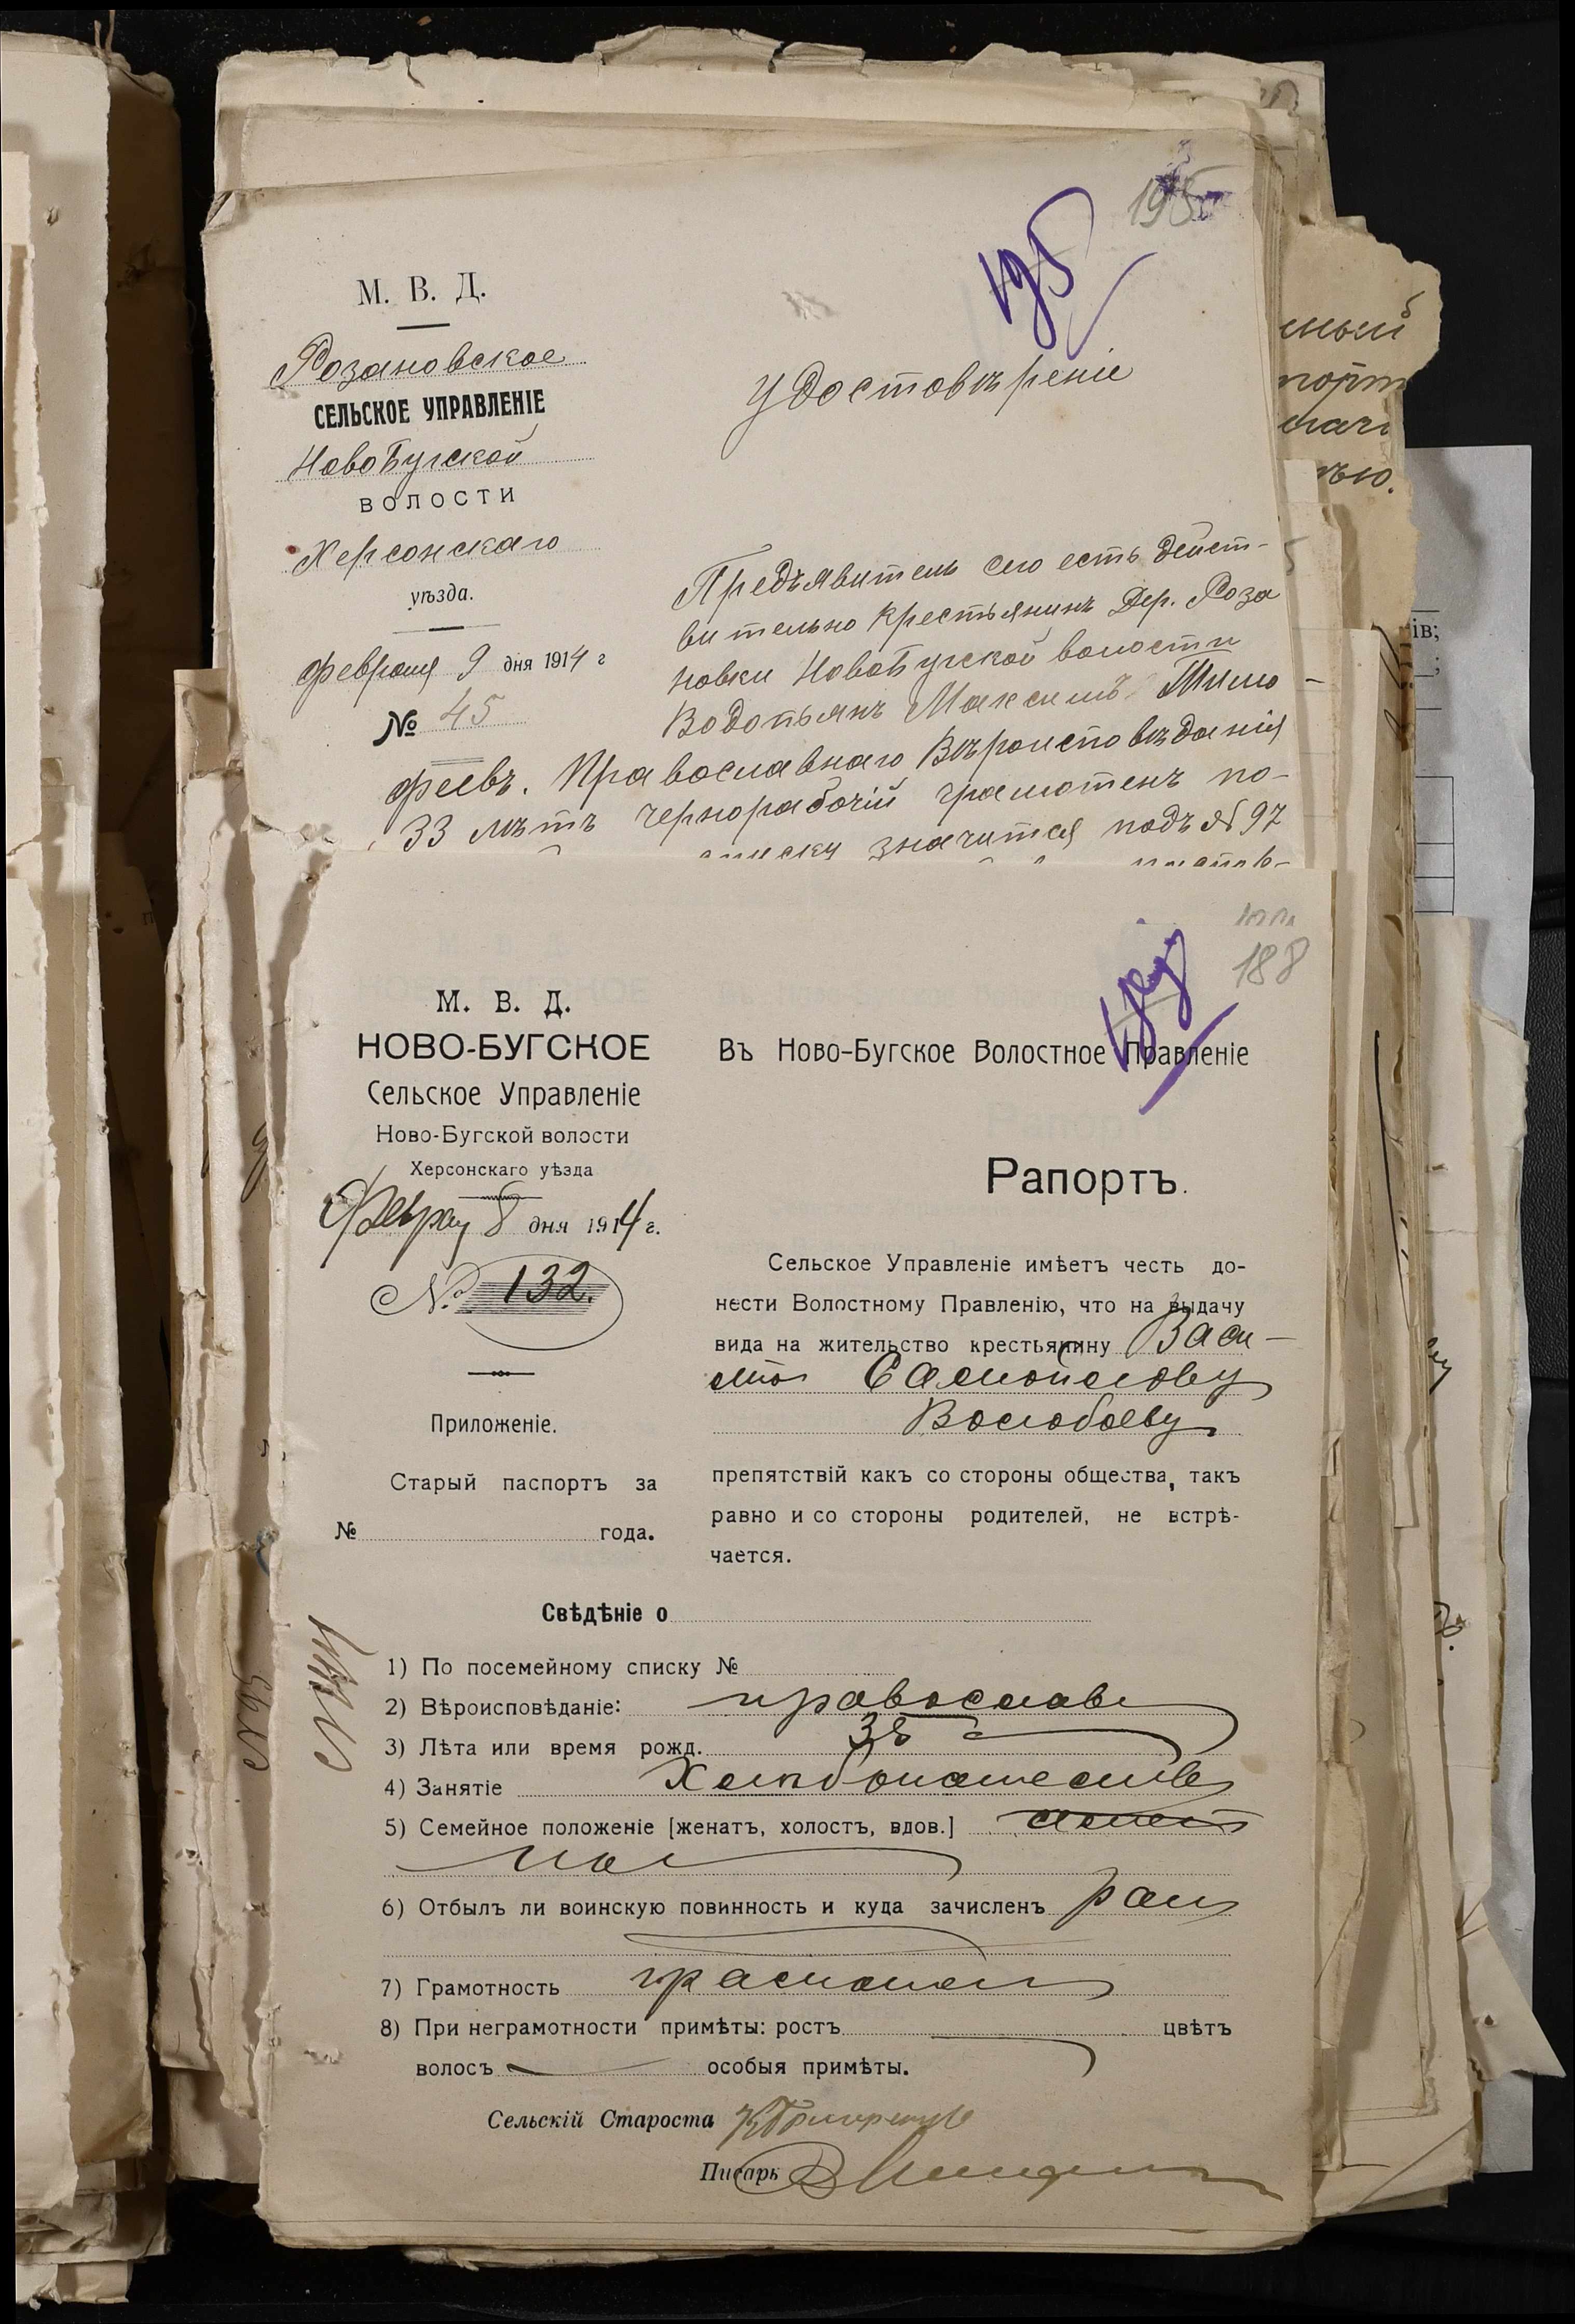 195
195
М. В. Д.
Розановское
СЕЛЬСКОЕ УПРАВЛЕНІЕ
НовоБугской
ВОЛОСТИ
Херсонскаго
уѣзда.
Февраля 9 дня 1914 г
№ 45
Удостовѣреніе
Предъявитель сего есть дейст-
вительно крестьянинъ Дер. Роза
новки НовоБугской волости
Водопьянъ Максимъ Тимо-
феевъ. Православнаго Вѣроисповѣданія
33 лѣтъ чернорабочій грамотенъ по-
списку значится подъ № 97
188
М. В. Д.
НОВО-БУГСКОЕ
Сельское Управленіе
Ново-Бугской волости
Херсонскаго уѣзда
Февраля 8 дня 1914 г.
№ 132.
Приложеніе.
Старый паспортъ за
№ года.
Въ Ново-Бугское Волостное Правленіе
Рапортъ.
Сельское Управленіе имѣетъ честь до-
нести Волостному Правленію, что на выдачу
вида на жительство крестьянину Васи-
лію Самойлову
препятствій какъ со стороны общества, такъ
равно и со стороны родителей, не встрѣ-
чается.
Свѣдѣніе о
1) По посемейному списку №
2) Вѣроисповѣданіе: православ
3) Лѣта или время рожд.
4) Занятіе
5) Семейное положеніе [женатъ, холостъ, вдов.]
6) Отбылъ ли воинскую повинность и куда зачисленъ
7) Грамотность грамотен
8) При неграмотности примѣты: ростъ цвѣтъ
волосъ особыя примѣты.
Сельскій Староста
Писарь